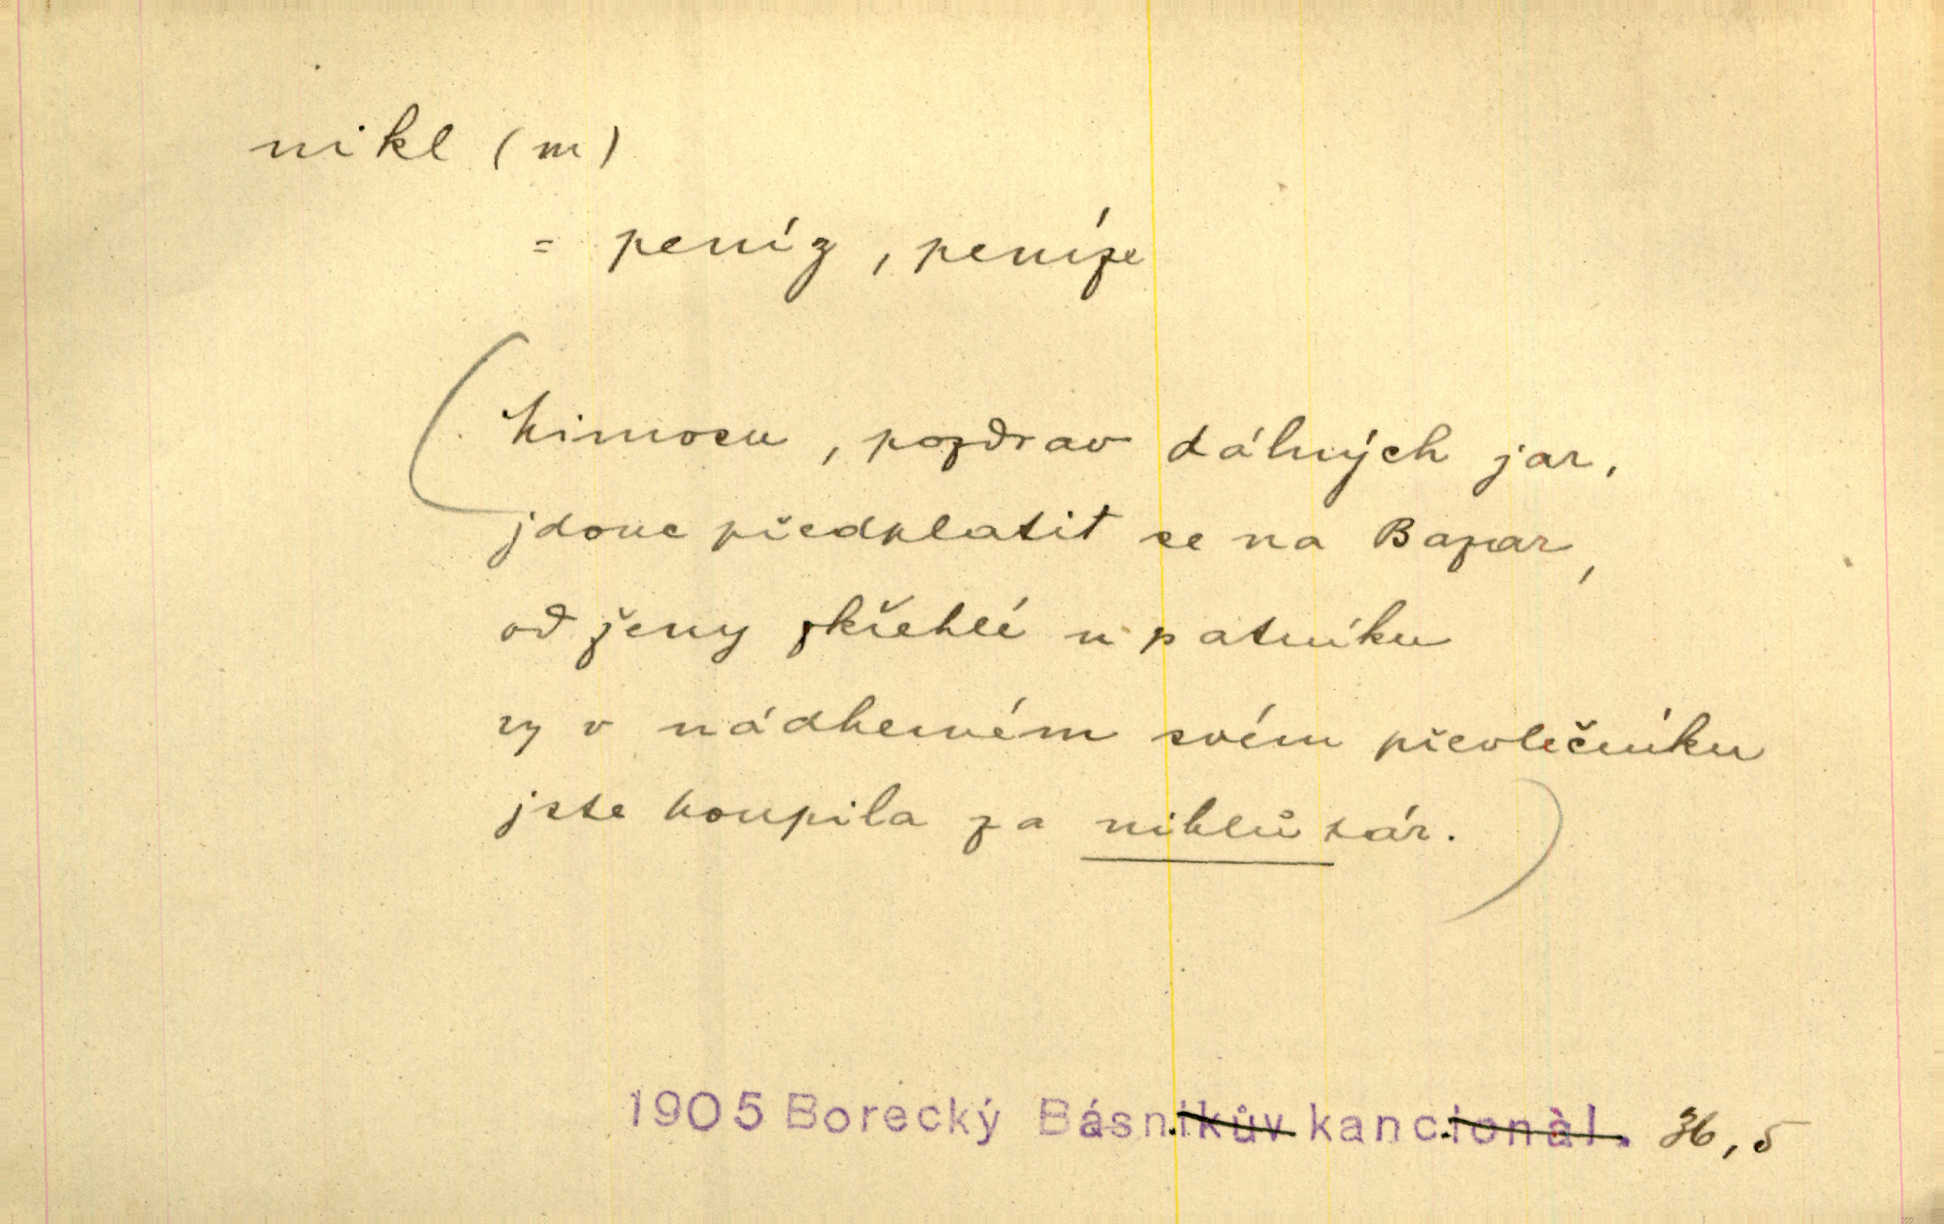 nikl (m)
= peníz, peníze
(Mimosu, pozdrav dálných jar,
jdouc předplatit se na Bazar,
od ženy zkřehlé u patníku
vy v nádherném svém převlečníku
jste koupila za niklů pár.)
1905 Borecký Básníkův kancionàl. 36, 5